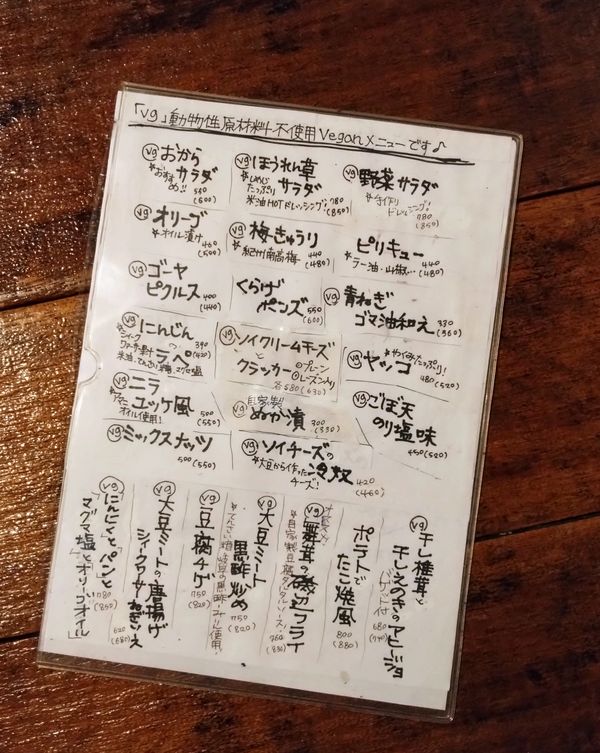 「vg」動物性原材料不使用Veganメニューです♪
vg おから
サラダ
おすすめ!!
540
(600)
vg ほうれん草
サラダ
*しめじたっぷり
米油HOTドレッシング! 780
(850)
vg 野菜サラダ
*手作りドレッシング!
780
(850)
vg オリーブ
*オイル漬け
460
(500)
vg 梅きゅうり
*紀州南高梅 440
(480)
ピリキュー
*ラー油・山椒… 440
(480)
vg ゴーヤ
ピクルス 400
(440)
くらげ
ポンズ 550
(600)
vg 青ねぎ
ゴマ油和え 330
(360)
vg にんじん
の
ラペ 390
(430)
vg ソイクリームチーズ
と
クラッカー
◎プレーン
◎レーズン入り
各580(630)
vg ヤッコ
*やくみたっぷり!
480(520)
vg ニラ
ユッケ風
オイル使用!
500
(550)
vg 自家製
ぬか漬 300
(330)
vg ごぼ天
のり塩味
450(520)
vg ミックスナッツ
500(550)
vg ソイチーズの
冷奴
*大豆から作った
チーズ!
420
(460)
vg 干し椎茸と
干しえのきのアヒージョ
680
(740)
ポテトで
たこ焼風
800
(880)
vg 舞茸の磯辺フライ
*自家製豆腐タルタルソース!
760
(830)
vg 大豆ミート
黒酢炒め
750
(820)
vg 豆腐チゲ
750
(820)
vg 大豆ミートの唐揚げ
シークワサーねぎソース
620
(680)
vg にんにくとパンと
「マグマ塩とオリーブオイル」
780
(850)